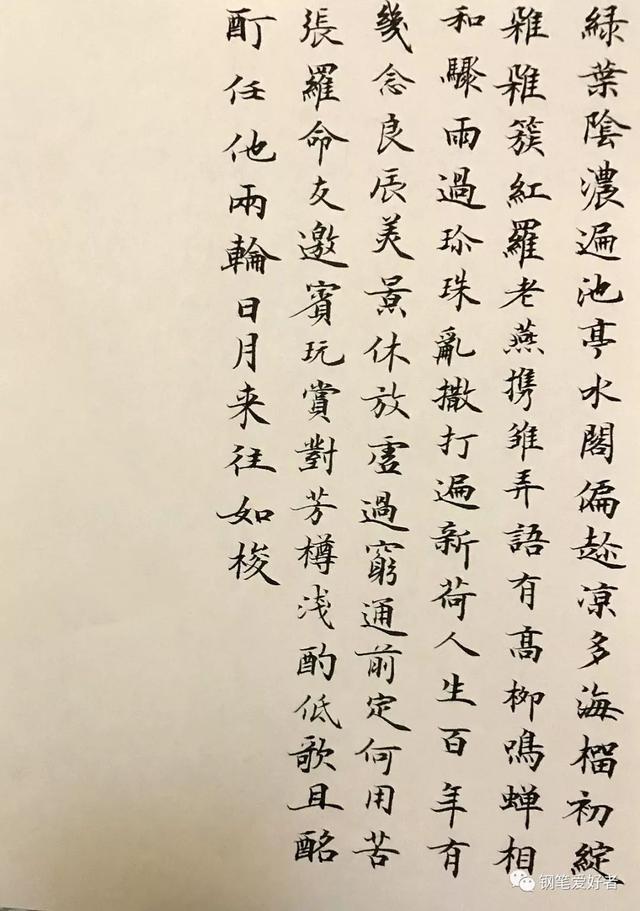 緑葉陰濃遍池亭水閣偏趂凉多海榴初綻
雜雜簇紅羅老燕携雏弄語有髙柳鳴蝉相
和驟雨過珎珠亂撒打遍新荷人生百年有
幾念良辰美景休放虚過窮通前定何用苦
張羅命友邀賓玩賞對芳樽浅酌低歌且酩
酊任他兩輪日月来往如梭
钢笔爱好者